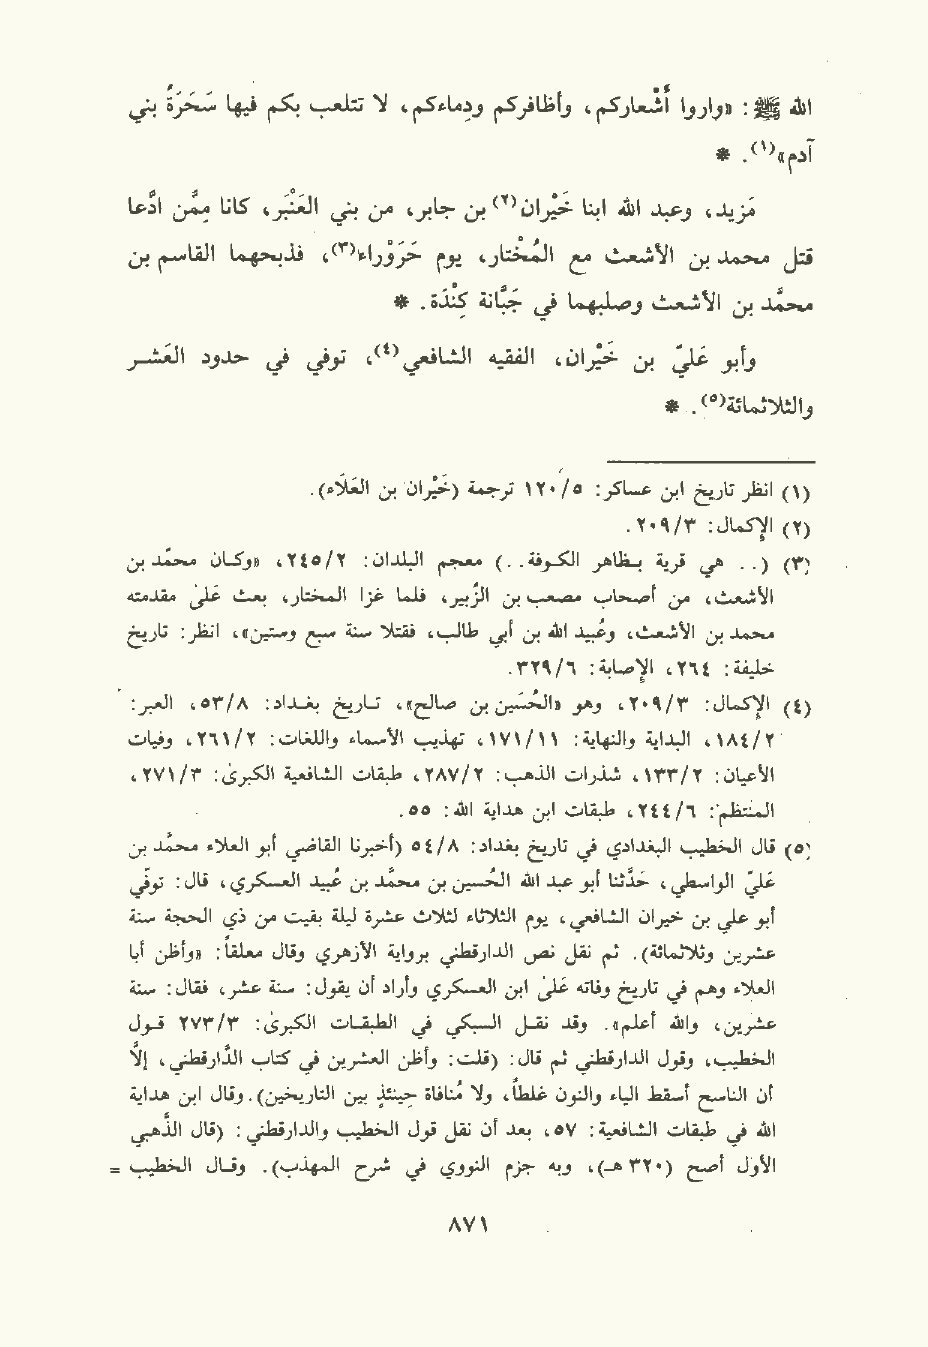 الله ﷺ : «واروا أَشْعاركم، وأظافركم ودِماءكم، لا تتلعب بكم فيها سَحَرَةُ بني
آدم»(١). *
مَزيد، وعبد الله ابنا خَيْران(٢) بن جابر، من بني العَنْبَر، كانا مِمَّن ادَّعا
قتل محمد بن الأشعث مع المُخْتار، يوم حَرَوْراء(٣)، فذبحهما القاسم بن
محمَّد بن الأشعث وصلبهما في جَبَّانة كِنْدَة. *
وأبو عَليّ بن خَيْران، الفقيه الشافعي(٤)، توفي في حدود العَشـر
والثلاثمائة(٥). *
(١) انظر تاريخ ابن عساكر: ١٢٠/٥ ترجمة (خَيْران بن العَلاء).
(٢) الإكمال: ٢٠٩/٣.
(٣) (. . هي قرية بـظاهر الكـوفة. .) معجم البلدان: ٢٤٥/٢، «وكـان محمَّد بن
الأشعث، من أصحاب مصعب بن الزُبير، فلما غزا المختار، بعث عَلىٰ مقدمته
محمد بن الأشعث، وعُبيد الله بن أبي طالب، فقتلا سنة سبع وستين»، انظر: تاريخ
خليفة: ٢٦٤، الإصابة: ٣٢٩/٦.
(٤) الإكمال: ٢٠٩/٣، وهو «الحُسَين بن صالح»، تـاريخ بغـداد: ٥٣/٨، العبر:
١٨٤/٢، البداية والنهاية: ١٧١/١١، تهذيب الأسماء واللغات: ٢٦١/٢، وفيات
الأعيان: ١٣٣/٢، شذرات الذهب: ٢٨٧/٢، طبقات الشافعية الكبرىٰ: ٢٧١/٣،
المنتظم: ٢٤٤/٦، طبقات ابن هداية الله: ٥٥.
(٥) قال الخطيب البغدادي في تاريخ بغداد: ٥٤/٨ (أخبرنا القاضي أبو العلاء محَّمد بن
عَليّ الواسطي، حَدَّثنا أبو عبد الله الحُسين بن محمَّد بن عُبيد العسكري، قال: توفّي
أبو علي بن خيران الشافعي، يوم الثلاثاء لثلاث عشرة ليلة بقيت من ذي الحجة سنة
عشرين وثلاثمائة). ثم نقل نص الدارقطني برواية الأزهري وقال معلقاً: «وأظن أبا
العلاء وهم في تاريخ وفاته عَلىٰ ابن العسكري وأراد أن يقول: سنة عشر، فقال: سنة
عشرين، والله أعلم». وقد نقـل السبكي في الطبقـات الكبرىٰ: ٢٧٣/٣ قـول
الخطيب، وقول الدارقطني ثم قال: (قلت: وأظن العشرين في كتاب الدَّارقطني، إلَّا
أن الناسخ أسقط الياء والنون غلطاً، ولا مُنافاة حِينئذٍ بين التاريخين). وقال ابن هداية
الله في طبقات الشافعية: ٥٧، بعد أن نقل قول الخطيب والدارقطني: (قال الذَّهبي
الأول أصح (٣٢٠ هـ)، وبه جزم النووي في شرح المهذب). وقـال الخطيب =
٨٧١